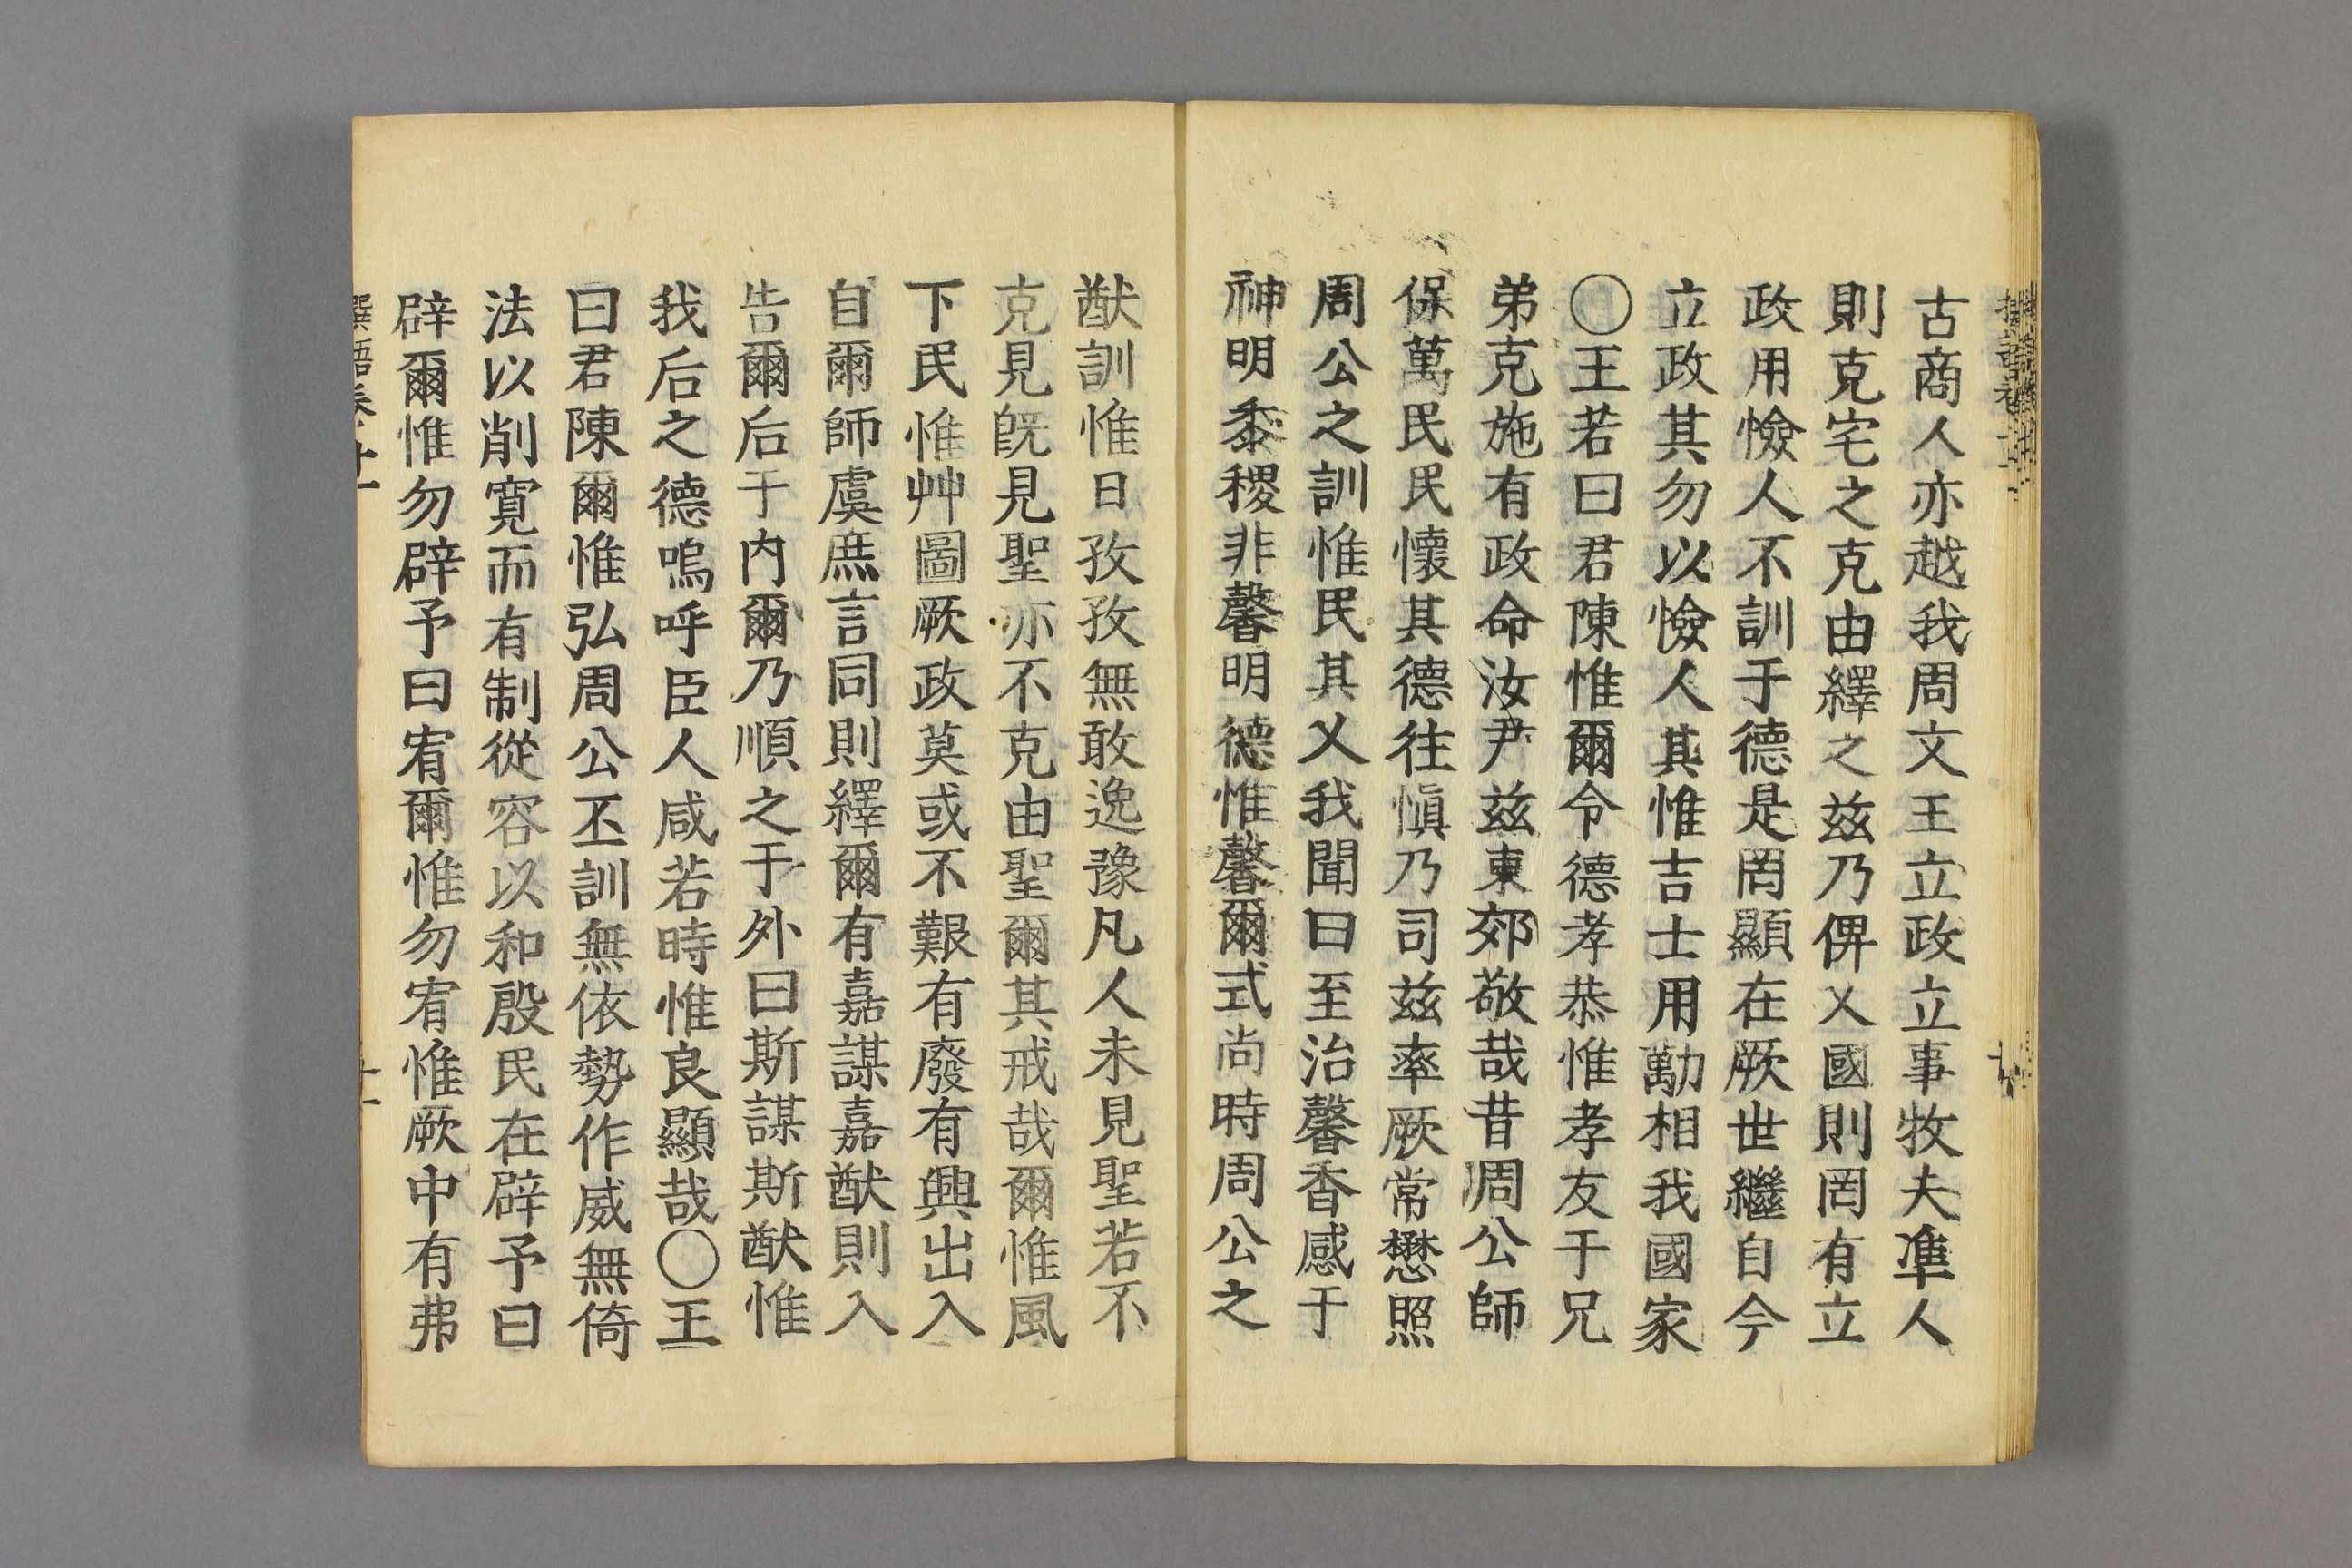 古商人亦越我周文王立政立事牧夫凖人
則克宅之克由繹之兹乃俾乂國則罔有立
政用憸人不訓于德是罔顯在厥世繼自今
立政其勿以憸人其惟吉士用勱相我國家
〇王若曰君陳惟爾令德孝恭惟孝友于兄
弟克施有政命汝尹兹東郊敬哉昔周公師
保萬民民懷其德往愼乃司兹率厥常懋照
周公之訓惟民其乂我聞曰至治馨香感于
神明黍稷非馨明德惟馨爾式尚時周公之
猷訓惟日孜孜無敢逸豫凡人未見聖若不
克見旣見聖亦不克由聖爾其戒哉爾惟風
下民惟艸圖厥政莫或不艱有廢有興出入
自爾師虞庶言同則繹爾有嘉謀嘉猷則入
告爾后于内爾乃順之于外曰斯謀斯猷惟
我后之德嗚呼臣人咸若時惟良顯哉〇王
曰君陳爾惟弘周公丕訓無依勢作威無倚
法以削寬而有制從容以和殷民在辟予曰
辟爾惟勿辟予曰宥爾惟勿宥惟厥中有弗